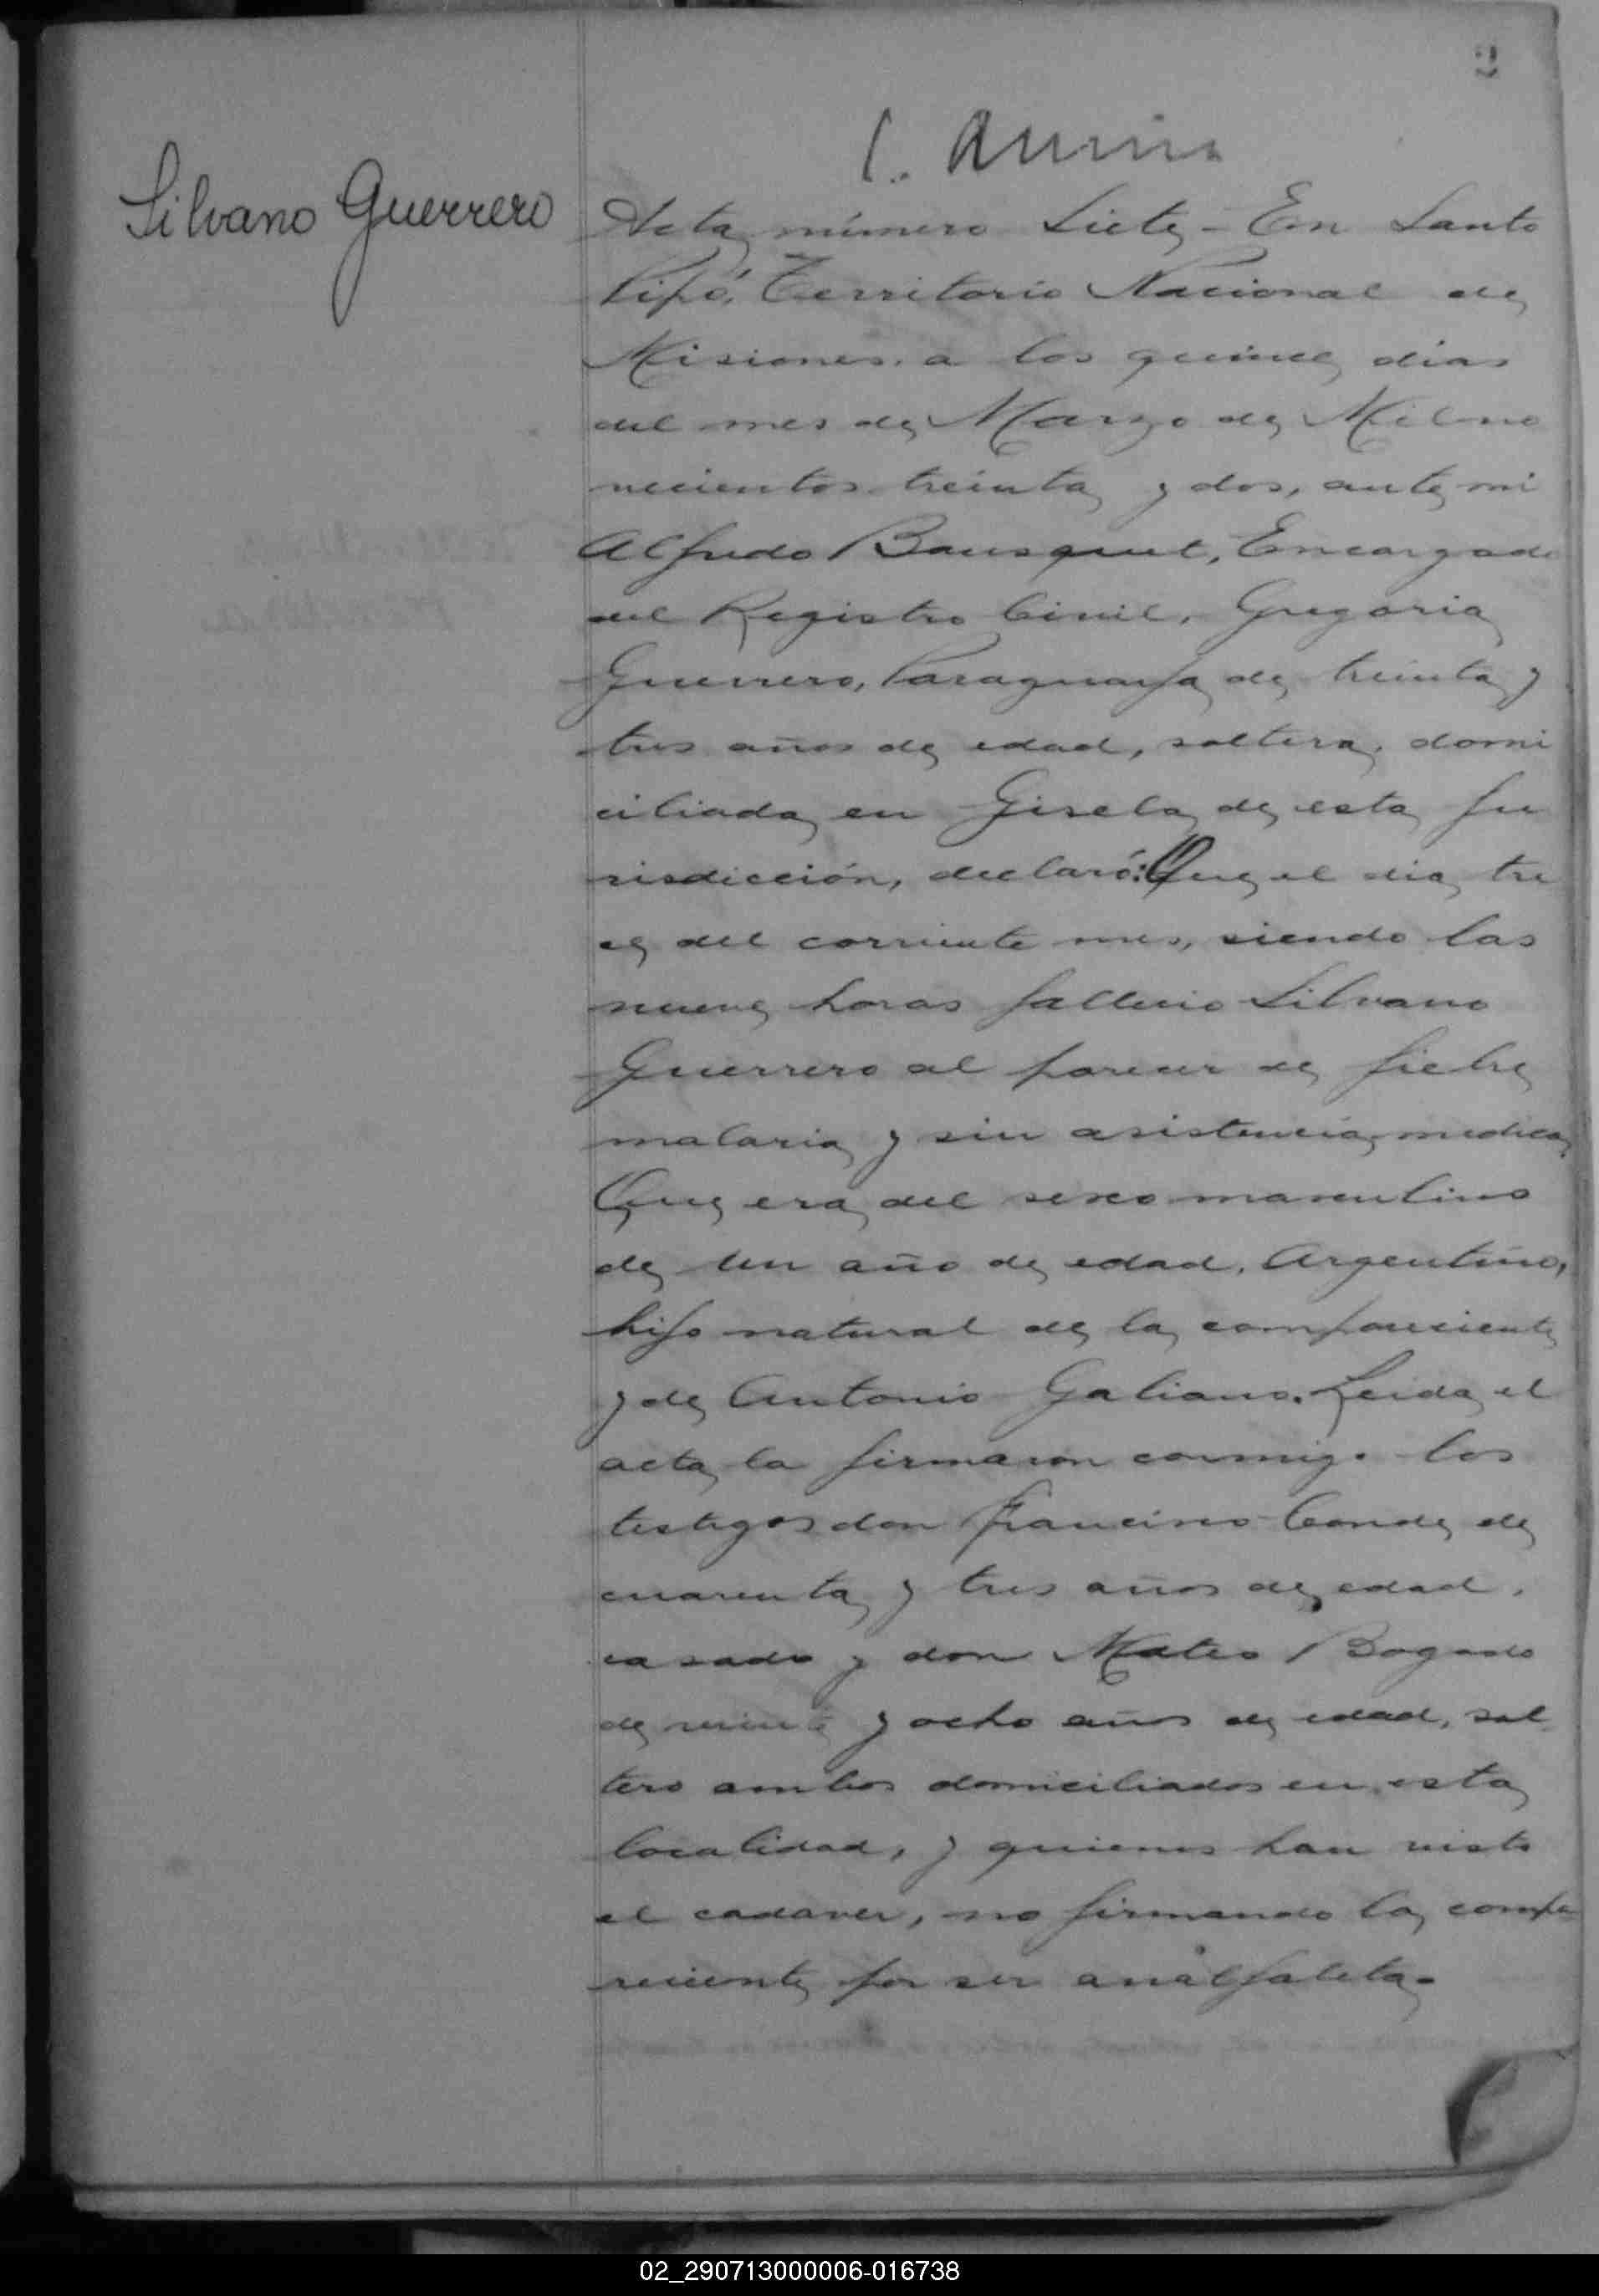 2
Silvano Guerrero
Acta número Siete - En Santo
Pipó, Territorio Nacional de
Misiones a los quince dias
del mes de Marzo de Mil no
vecientos treinta y dos, ante mi
Alfredo Bousquet, Encargado
del Registro Civil, Gregoria
Guerrero, Paraguaya de treinta y
tres años de edad, soltera, domi
ciliada en Gisela de esta ju
risdicción, declaró: Que el dia tre
ce del corriente mes, siendo las
nueve horas fallecio Silvano
Guerrero al parecer de fiebre
malaria y sin asistencia medica,
Que era del sexo masculino
de un año de edad, Argentino,
hijo natural de la compareciente
y de Antonio Galiano. Leida el
acta la firmaron conmigo los
testigos don Francisco Conde de
cuarenta y tres años de edad,
casado y don Mateo Bogado
de veinte y ocho años de edad, sol
tero ambos domiciliados en esta
localidad, y quienes han visto
el cadaver, no firmando la compa
reciente por ser analfabeta.
02_290713000006-016738